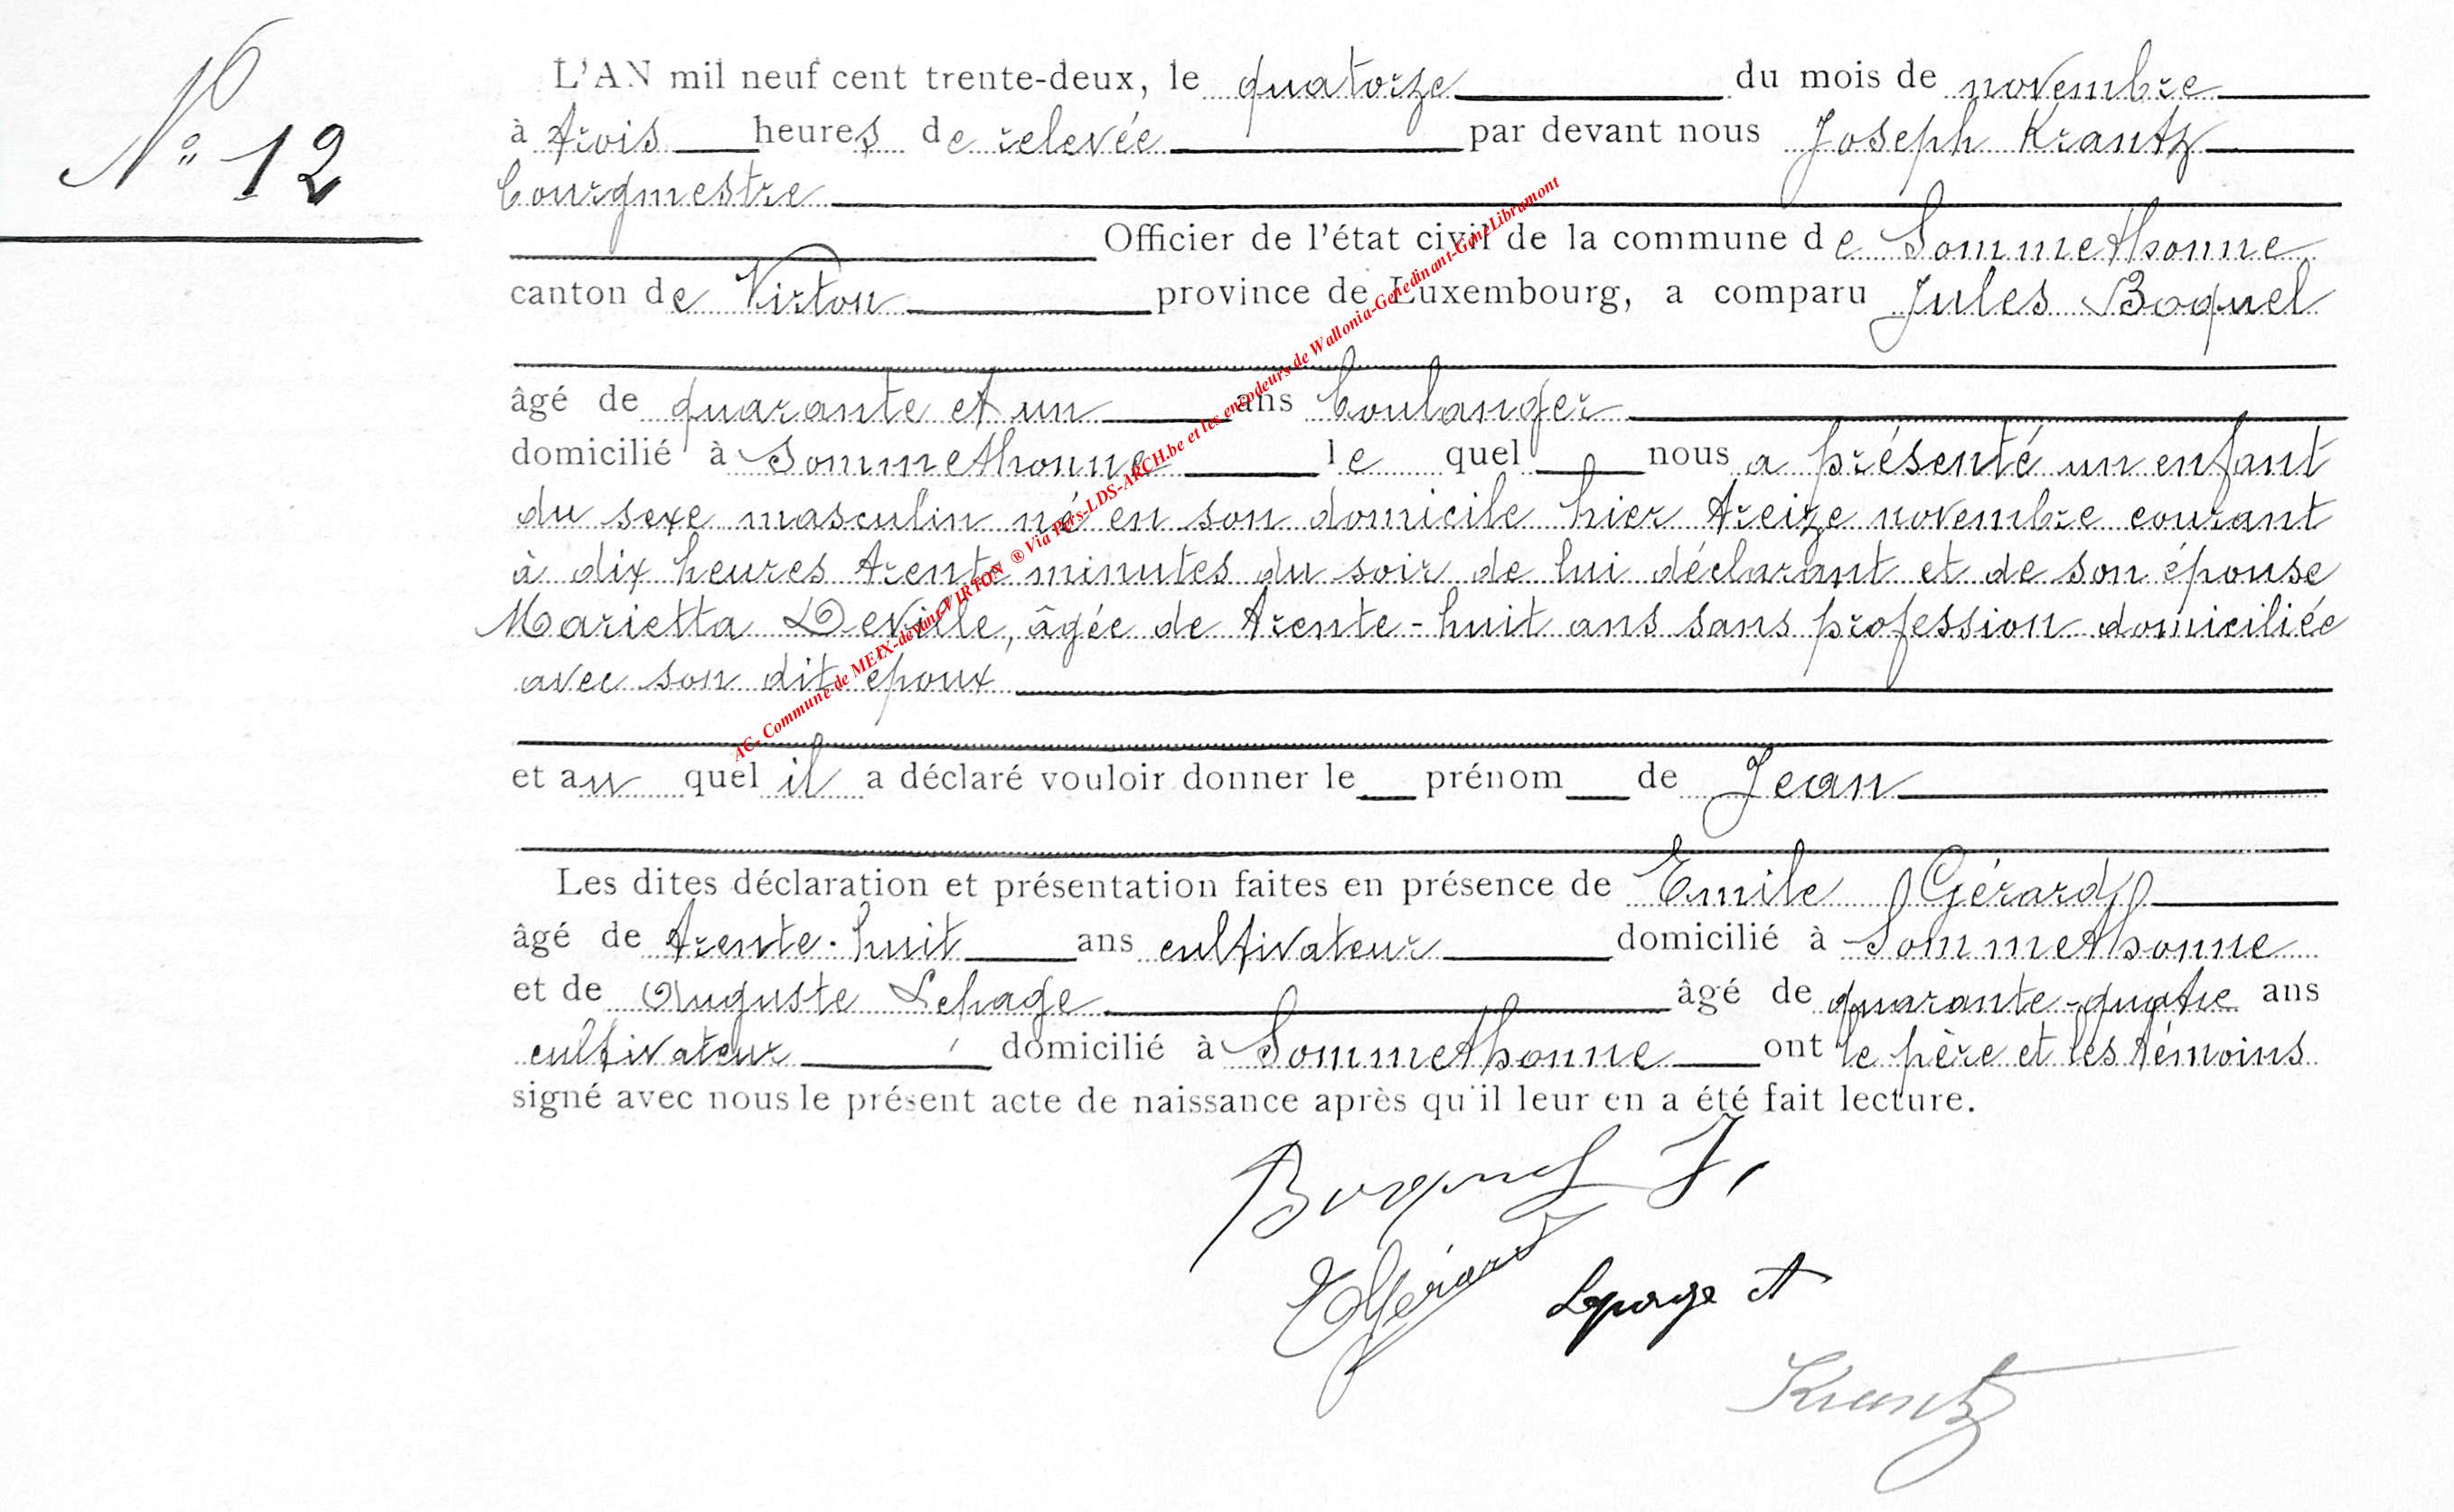 N° 12
L'AN mil neuf cent trente-deux, le quatorze du mois de novembre
à trois heures de relevée par devant nous Joseph Krantz
bourgmestre
Officier de l'état civil de la commune de Sommethonne
canton de Virton province de Luxembourg, a comparu Jules Boquel
âgé de quarante et un ans boulanger
domicilié à Sommethonne le quel nous a présenté un enfant
du sexe masculin né en son domicile hier treize novembre courant
à dix heures trente minutes du soir de lui déclarant et de son épouse
Marietta Deville, âgée de trente-huit ans sans profession domiciliée
avec son dit époux
et au quel il a déclaré vouloir donner le prénom de Jean
Les dites déclaration et présentation faites en présence de Emile Gérard
âgé de trente-huit ans cultivateur domicilié à Sommethonne
et de Auguste Lepage âgé de quarante-quatre ans
cultivateur domicilié à Sommethonne ont le père et les témoins
signé avec nous le présent acte de naissance après qu'il leur en a été fait lecture.
Boquel J.
E Gérard Lepage A
Krantz
AC- Commune de MEIX-devant-VIRTON ® Via Pers-LDS-ARCH.be et les encodeurs de Wallonia-Genedinant-GeneLibramont